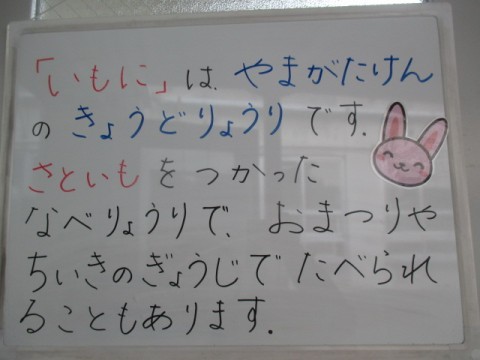 「いもに」は、やまがたけん
の きょうどりょうり です.
さといもをつかった
なべりょうりで、おまつりや
ちいきのぎょうじでたべられ
ることもあります.